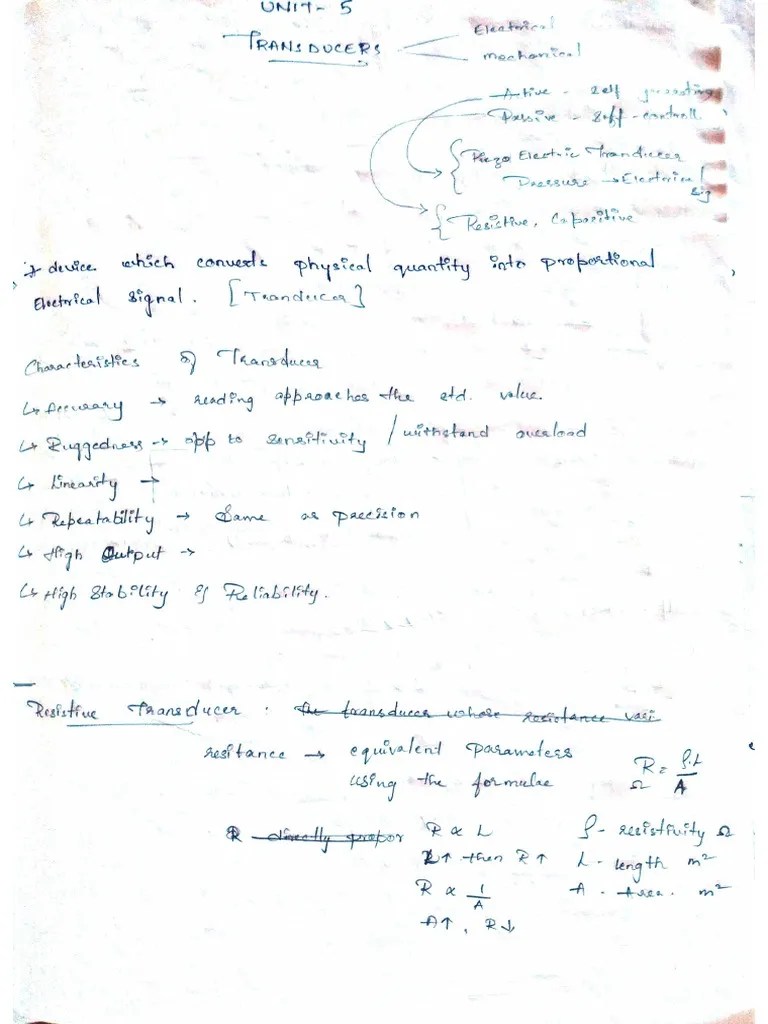 UNIT- 5
TRANSDUCERS
Electrical
mechanical
Active - self generating
Passive - self-controll
{ Piezo Electric Tranducer
Pressure → Electrical sig
{ Resistive, Capacitive
* device which converts physical quantity into proportional
Electrical signal. [Tranducer]
Characteristics of Transducer
↳ Accuracy → reading approaches the std. value.
↳ Ruggedness → opp to sensitivity / withstand overload
↳ Linearity →
↳ Repeatability → Same as precision
↳ High Output →
↳ High Stability & Reliability.
Resistive Transducer : the transducer whose resistance vari
resitance → equivalent parameters
using the formulae R = ρ.L/A
Ω
R directly propor R ∝ L ρ - resistivity Ω
L↑ then R↑ L - length m²
R ∝ 1/A A - Area - m²
A↑, R↓